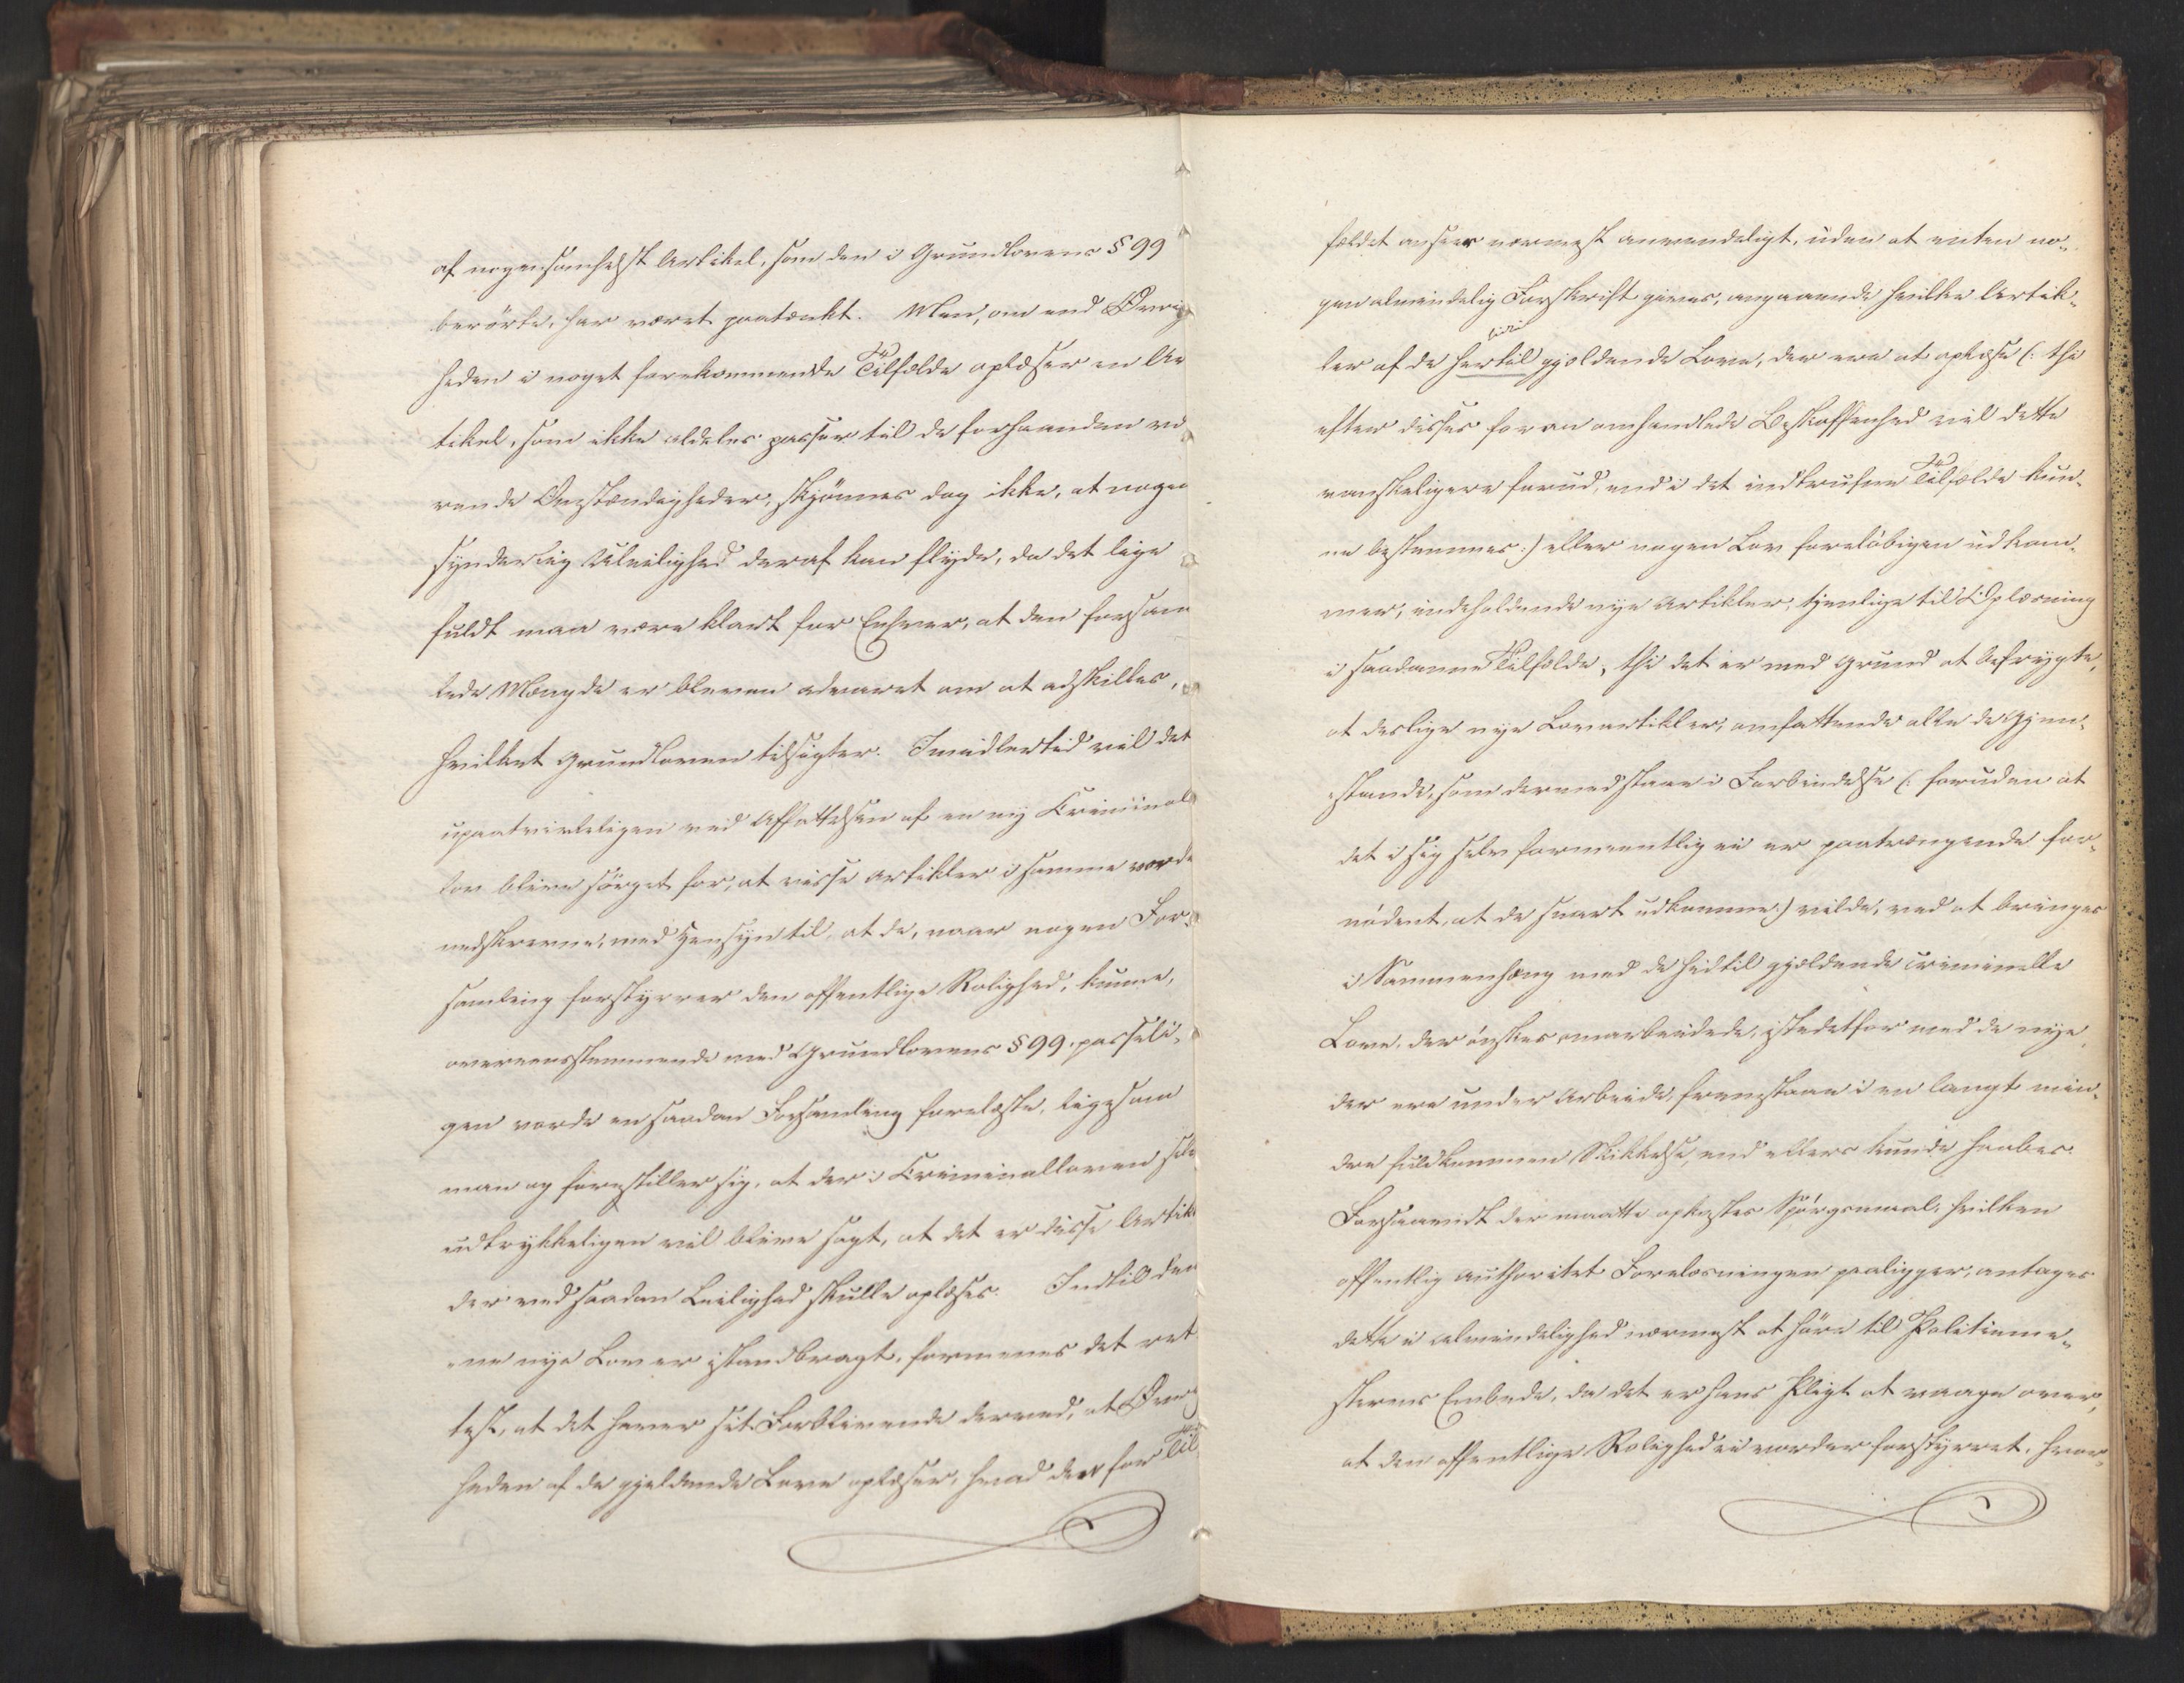 af nogensomhelst Artikel, som den i Grundlovens § 99
berørte, har været paatænkt. Men, om end Øvrig
heden i noget forekommende Tilfælde oplæser en Ar
tikel, som ikke aldeles passer til de forhaanden væ
rende Omstændigheder, skjønnes dog ikke, at nogen
synderlig Uleilighed deraf kan flyde, da det lige
fuldt maa være klart for Enhver, at den forsam
lede Mængde er bleven advaret om at adskilles,
hvilket Grundloven tilsigter. Imidlertid vil det
upaatvivleligen ved Affattelsen af en ny Criminal
lov blive sørget for, at visse Artikler i samme vorde
nedskrevne, med Hensyn til, at de, naar nogen For-
samling forstyrrer den offentlige Rolighed, kunne,
overeensstemmende med Grundlovens § 99. passeli-
gen vorde en saadan Forsamling forelæste, ligesom
man og forestiller sig, at der i Criminalloven selv
udtrykkeligen vil blive sagt, at det er disse Artik
der ved saadan Leilighed skulle oplæses. Indtil den
ne nye Lov er istandbragt, formenes det ret
test, at det haver sit Forblivende derved, at Øvrig
heden af de gjeldende Love oplæser, hvad der for Til
fældet ansees nærmest anvendeligt, uden at enten no-
gen almindelig Forskrift gives, angaaende hvilke Artik-
ler af de hertil gjældende Love, der ere at oplæse (: thi
efter disses foran omhandlede Beskaffenhed vil dette
vanskeligere forud, end i det indtrufne Tilfælde kun-
ne bestemmes :) eller nogen Lov foreløbigen udkom-
mer, indeholdende nye Artikler, tjenlige til Oplæsning
i saadanne Tilfælde, thi det er med Grund at befrygte,
at deslige nye Lovartikler, omfattende alle de Gjen-
stande, som dermed staae i Forbindelse (: foruden at
det i sig selv formeentlig ei er paatrængende for-
nødent, at de snart udkomme :) vilde, ved at bringes
i Sammenhæng med de hidtil gjældende criminelle
Love, der ønskes omarbeidede, istedetfor med de nye,
der ere under Arbeide, fremstaae i en langt min-
dre fuldkommen Skikkelse, end ellers kunde haabes.
Forsaavidt der maatte opkastes Spørgsmaal, hvilken
offentlig Authoritet Forelæsningen paaligger, antages
dette i Almindelighed nærmest at høre til Politieme-
sterens Embede, da det er hans Pligt at vaage over,
at den offentlige Rolighed ei vorder forstyrret, hvor-